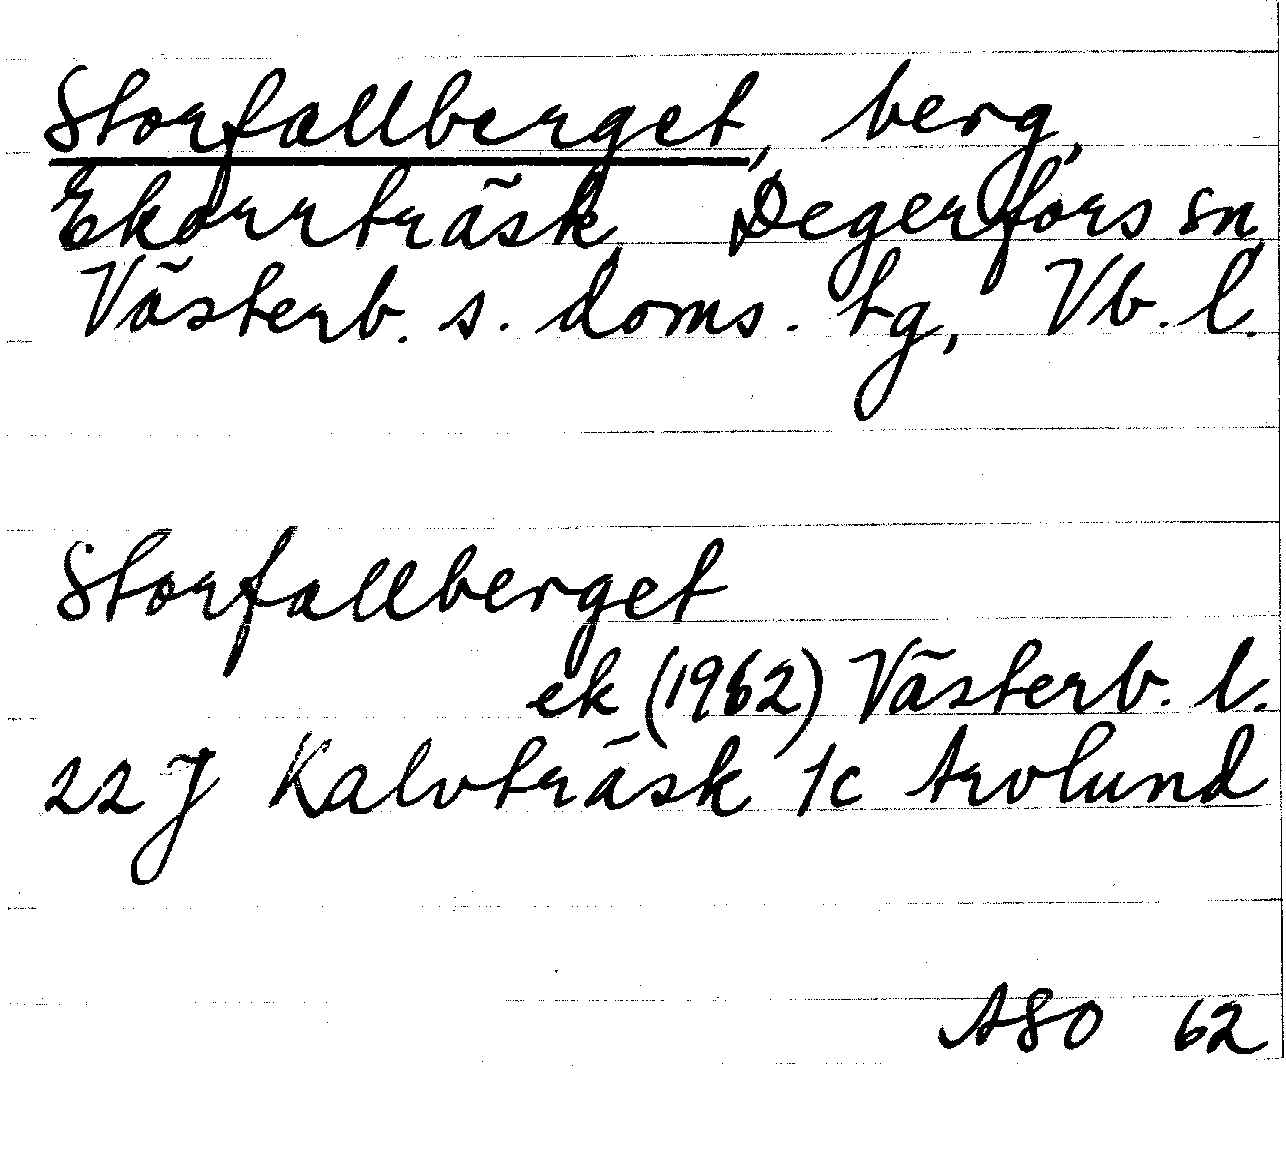 Storfallberget, berg,
Ekorrträsk, Degerfors sn,
Västerb. s. doms. tg, Vb. l.
Storfallberget
ek (1962) Västerb. l.
22 J Kalvträsk 1c Arvlund
ASO 62